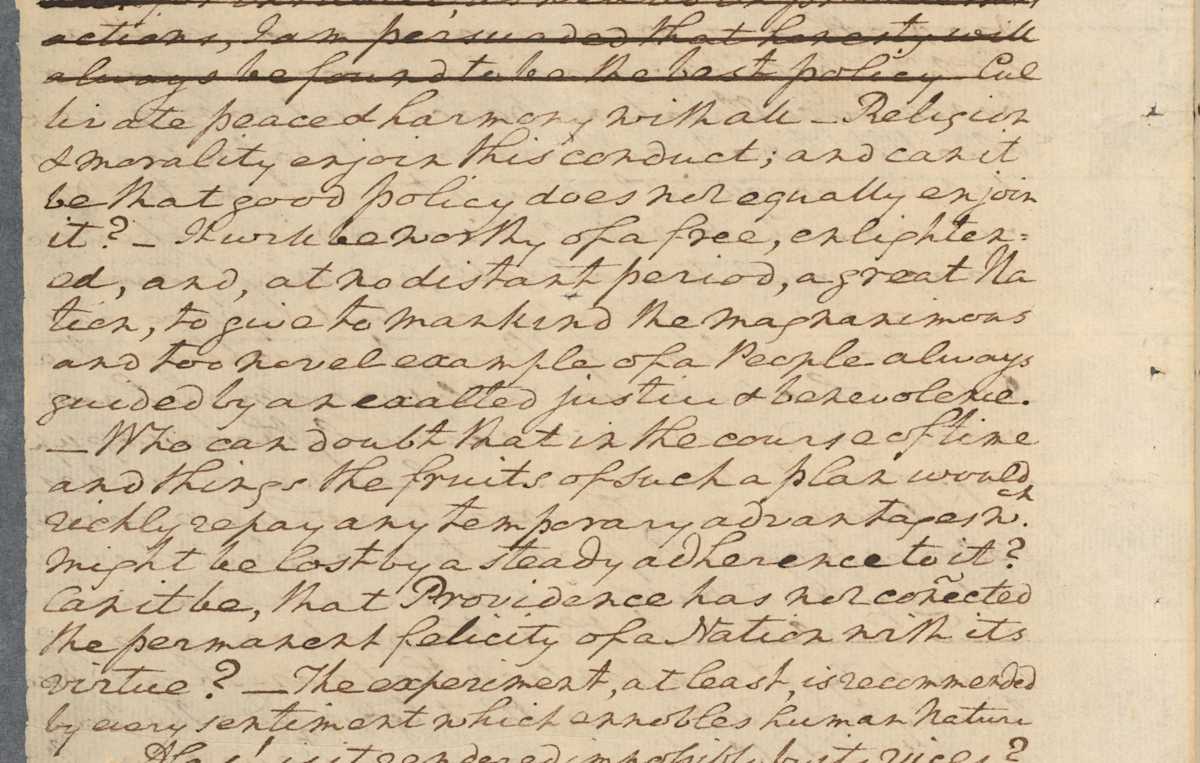 actions, I am persuaded that honesty will
always be found to be the best policy Cul
tivate peace & harmony with all – Religion
& morality enjoin this conduct; and can it
be that good policy does not equally enjoin
it? – It will be worthy of a free, enlighten=
ed, and, at no distant period, a great Na
tion, to give to mankind the magnanimous
and too novel example of a People always
guided by an exalted justice & benevolence.
– Who can doubt that in the course of time
and things the fruits of such a plan would
richly repay any temporary advantages wch.
might be lost by a steady adherence to it?
Can it be, that Providence has not coñected
the permanent felicity of a Nation with its
virtue? – The experiment, at least, is recommended
by every sentiment which ennobles human Nature
Alas! is it rendered impossible by its vices?